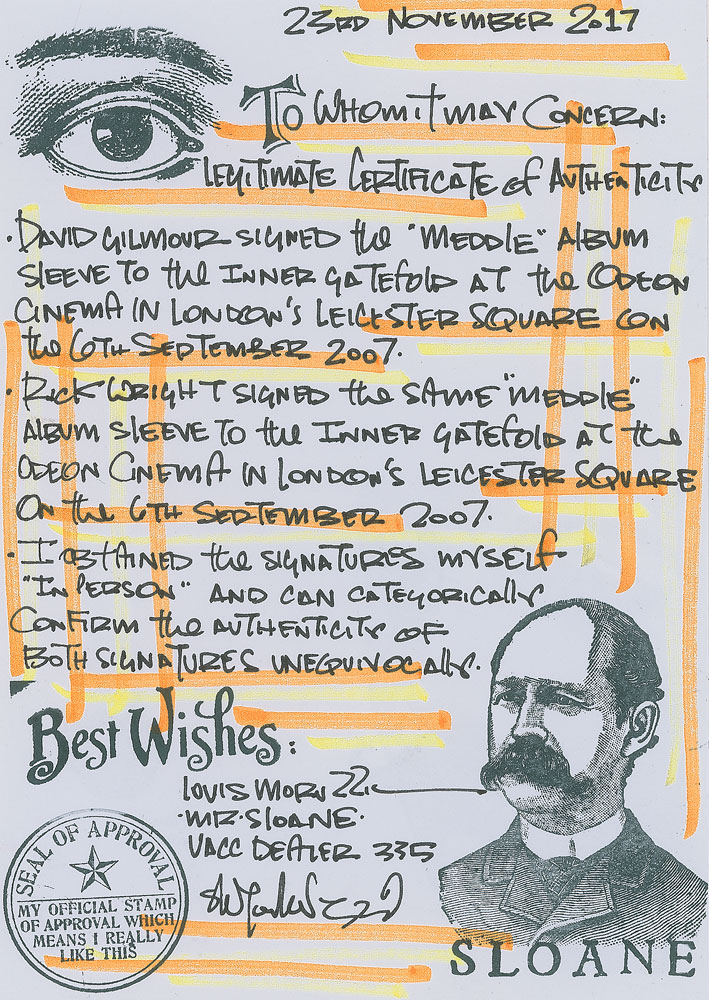 23RD NOVEMBER 2017
TO WHOM IT MAY CONCERN:
LEGITIMATE CERTIFICATE of AUTHENTICITY
·DAVID GILMOUR SIGNED the "MEDDLE" ALBUM
SLEEVE TO the INNER GATEFOLD AT the ODEON
CINEMA IN LONDON'S LEICESTER SQUARE ON
the 6TH SEPTEMBER 2007.
·RICK WRIGHT SIGNED the SAME "MEDDLE"
ALBUM SLEEVE TO the INNER GATEFOLD AT the
ODEON CINEMA IN LONDON'S LEICESTER SQUARE
ON the 6TH SEPTEMBER 2007.
·I OBTAINED the SIGNATURES MYSELF
"IN PERSON" AND CAN CATEGORICALLY
CONFIRM the AUTHENTICITY OF
BOTH SIGNATURES UNEQUIVOCALLY.
Best Wishes:
LOUIS
·MR·SLOANE·
UACC DEALER 335
SEAL OF APPROVAL
MY OFFICIAL STAMP
OF APPROVAL WHICH
MEANS I REALLY
LIKE THIS
SLOANE